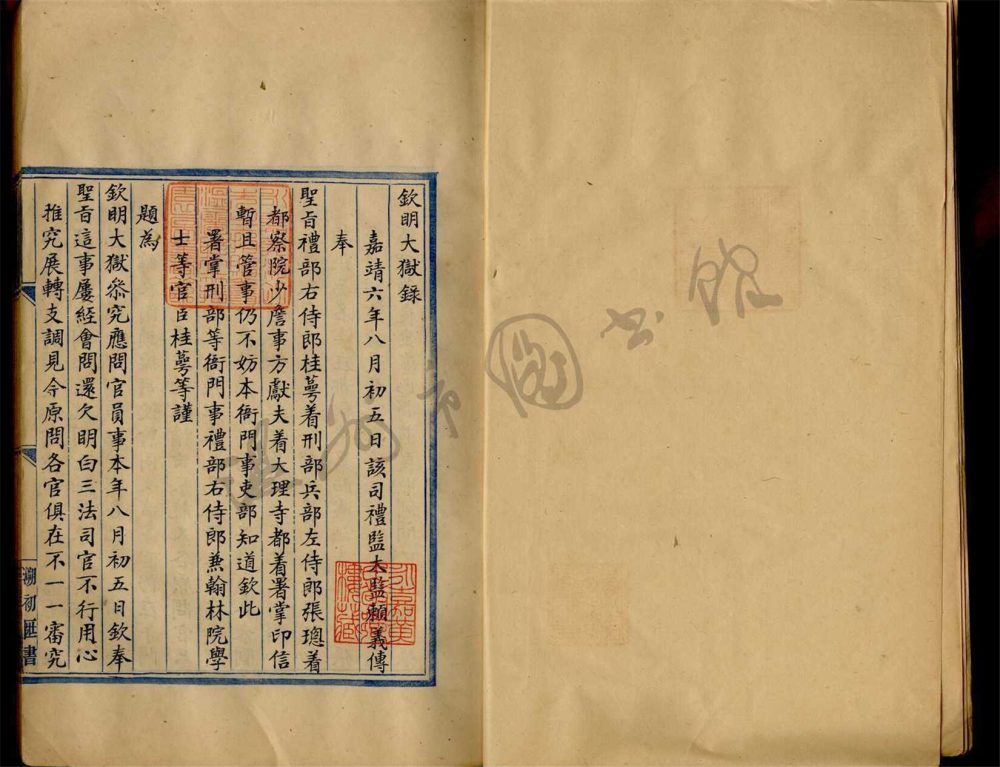 欽明大獄錄
嘉靖六年八月初五日該司禮監太監賴義傳
奉
聖旨禮部右侍郎桂萼着刑部兵部左侍郎張璁着
都察院少詹事方獻夫着大理寺都着署掌印信
暫且管事仍不妨本衙門事吏部知道欽此
署掌刑部等衙門事禮部右侍郎兼翰林院學
士等官臣桂萼等謹
題為
欽明大獄叅究應問官員事本年八月初五日欽奉
聖旨這事屢經會問還欠明白三法司官不行用心
推究展轉支調見今原問各官俱在不一一審究
溯初匪書
溫州市圖書館